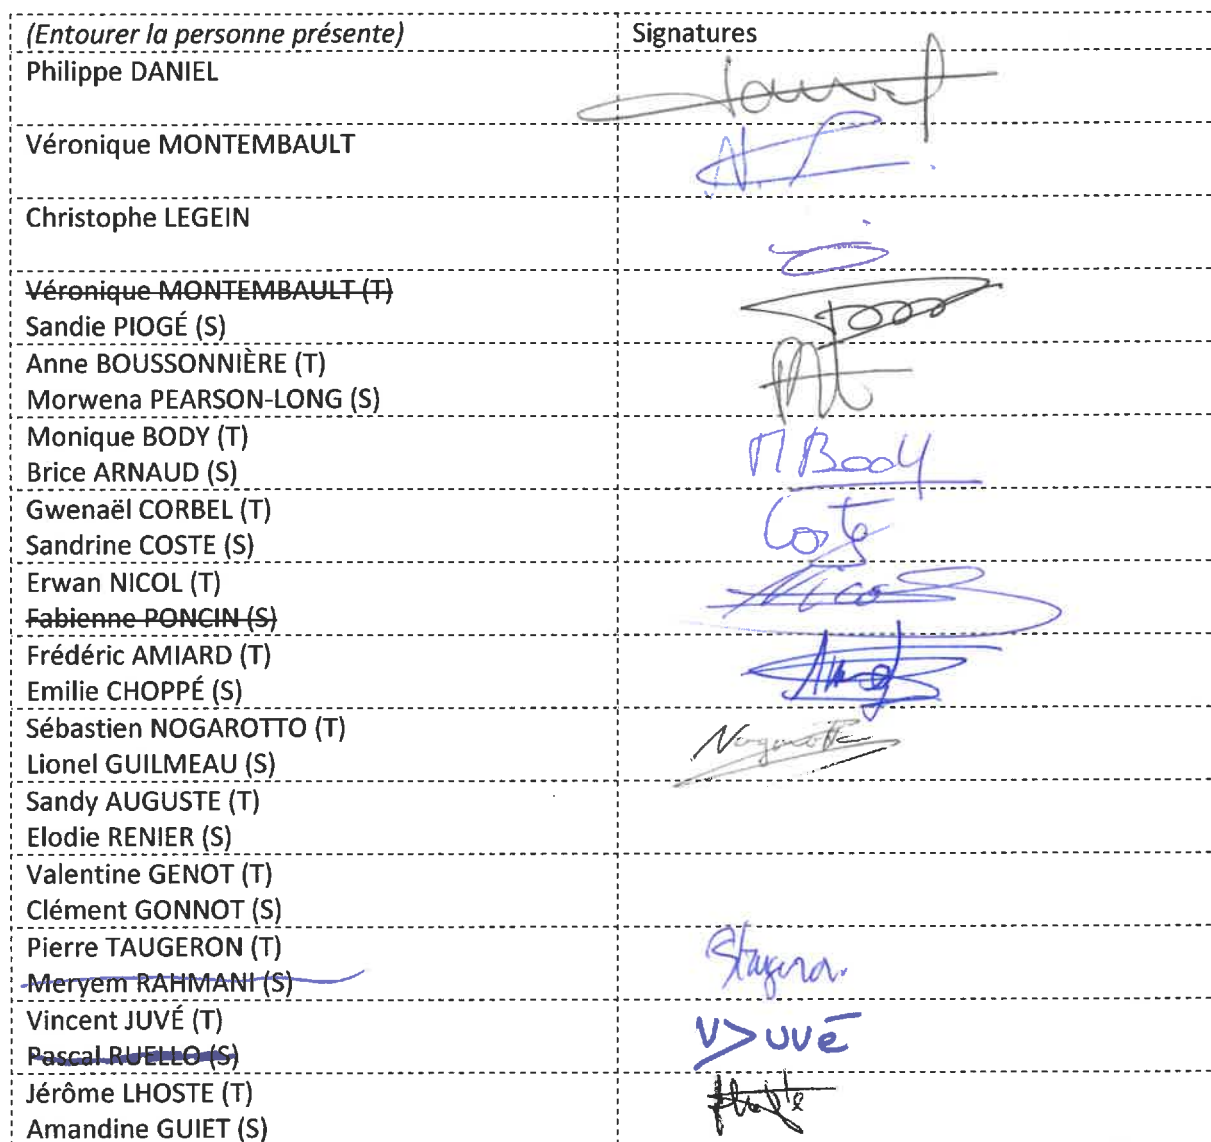 (Entourer la personne présente) Signatures
Philippe DANIEL
Véronique MONTEMBAULT
Christophe LEGEIN
Véronique MONTEMBAULT (T)
Sandie PIOGÉ (S)
Anne BOUSSONNIÈRE (T)
Morwena PEARSON-LONG (S)
Monique BODY (T)
M Body
Brice ARNAUD (S)
Gwenaël CORBEL (T)
Coste
Sandrine COSTE (S)
Erwan NICOL (T)
Nicol
Fabienne PONCIN (S)
Frédéric AMIARD (T)
Emilie CHOPPÉ (S)
Sébastien NOGAROTTO (T)
Nogarotto
Lionel GUILMEAU (S)
Sandy AUGUSTE (T)
Elodie RENIER (S)
Valentine GENOT (T)
Clément GONNOT (S)
Pierre TAUGERON (T)
Meryem RAHMANI (S)
Vincent JUVÉ (T)
V JUVÉ
Pascal RUELLO (S)
Jérôme LHOSTE (T)
Lhoste
Amandine GUIET (S)